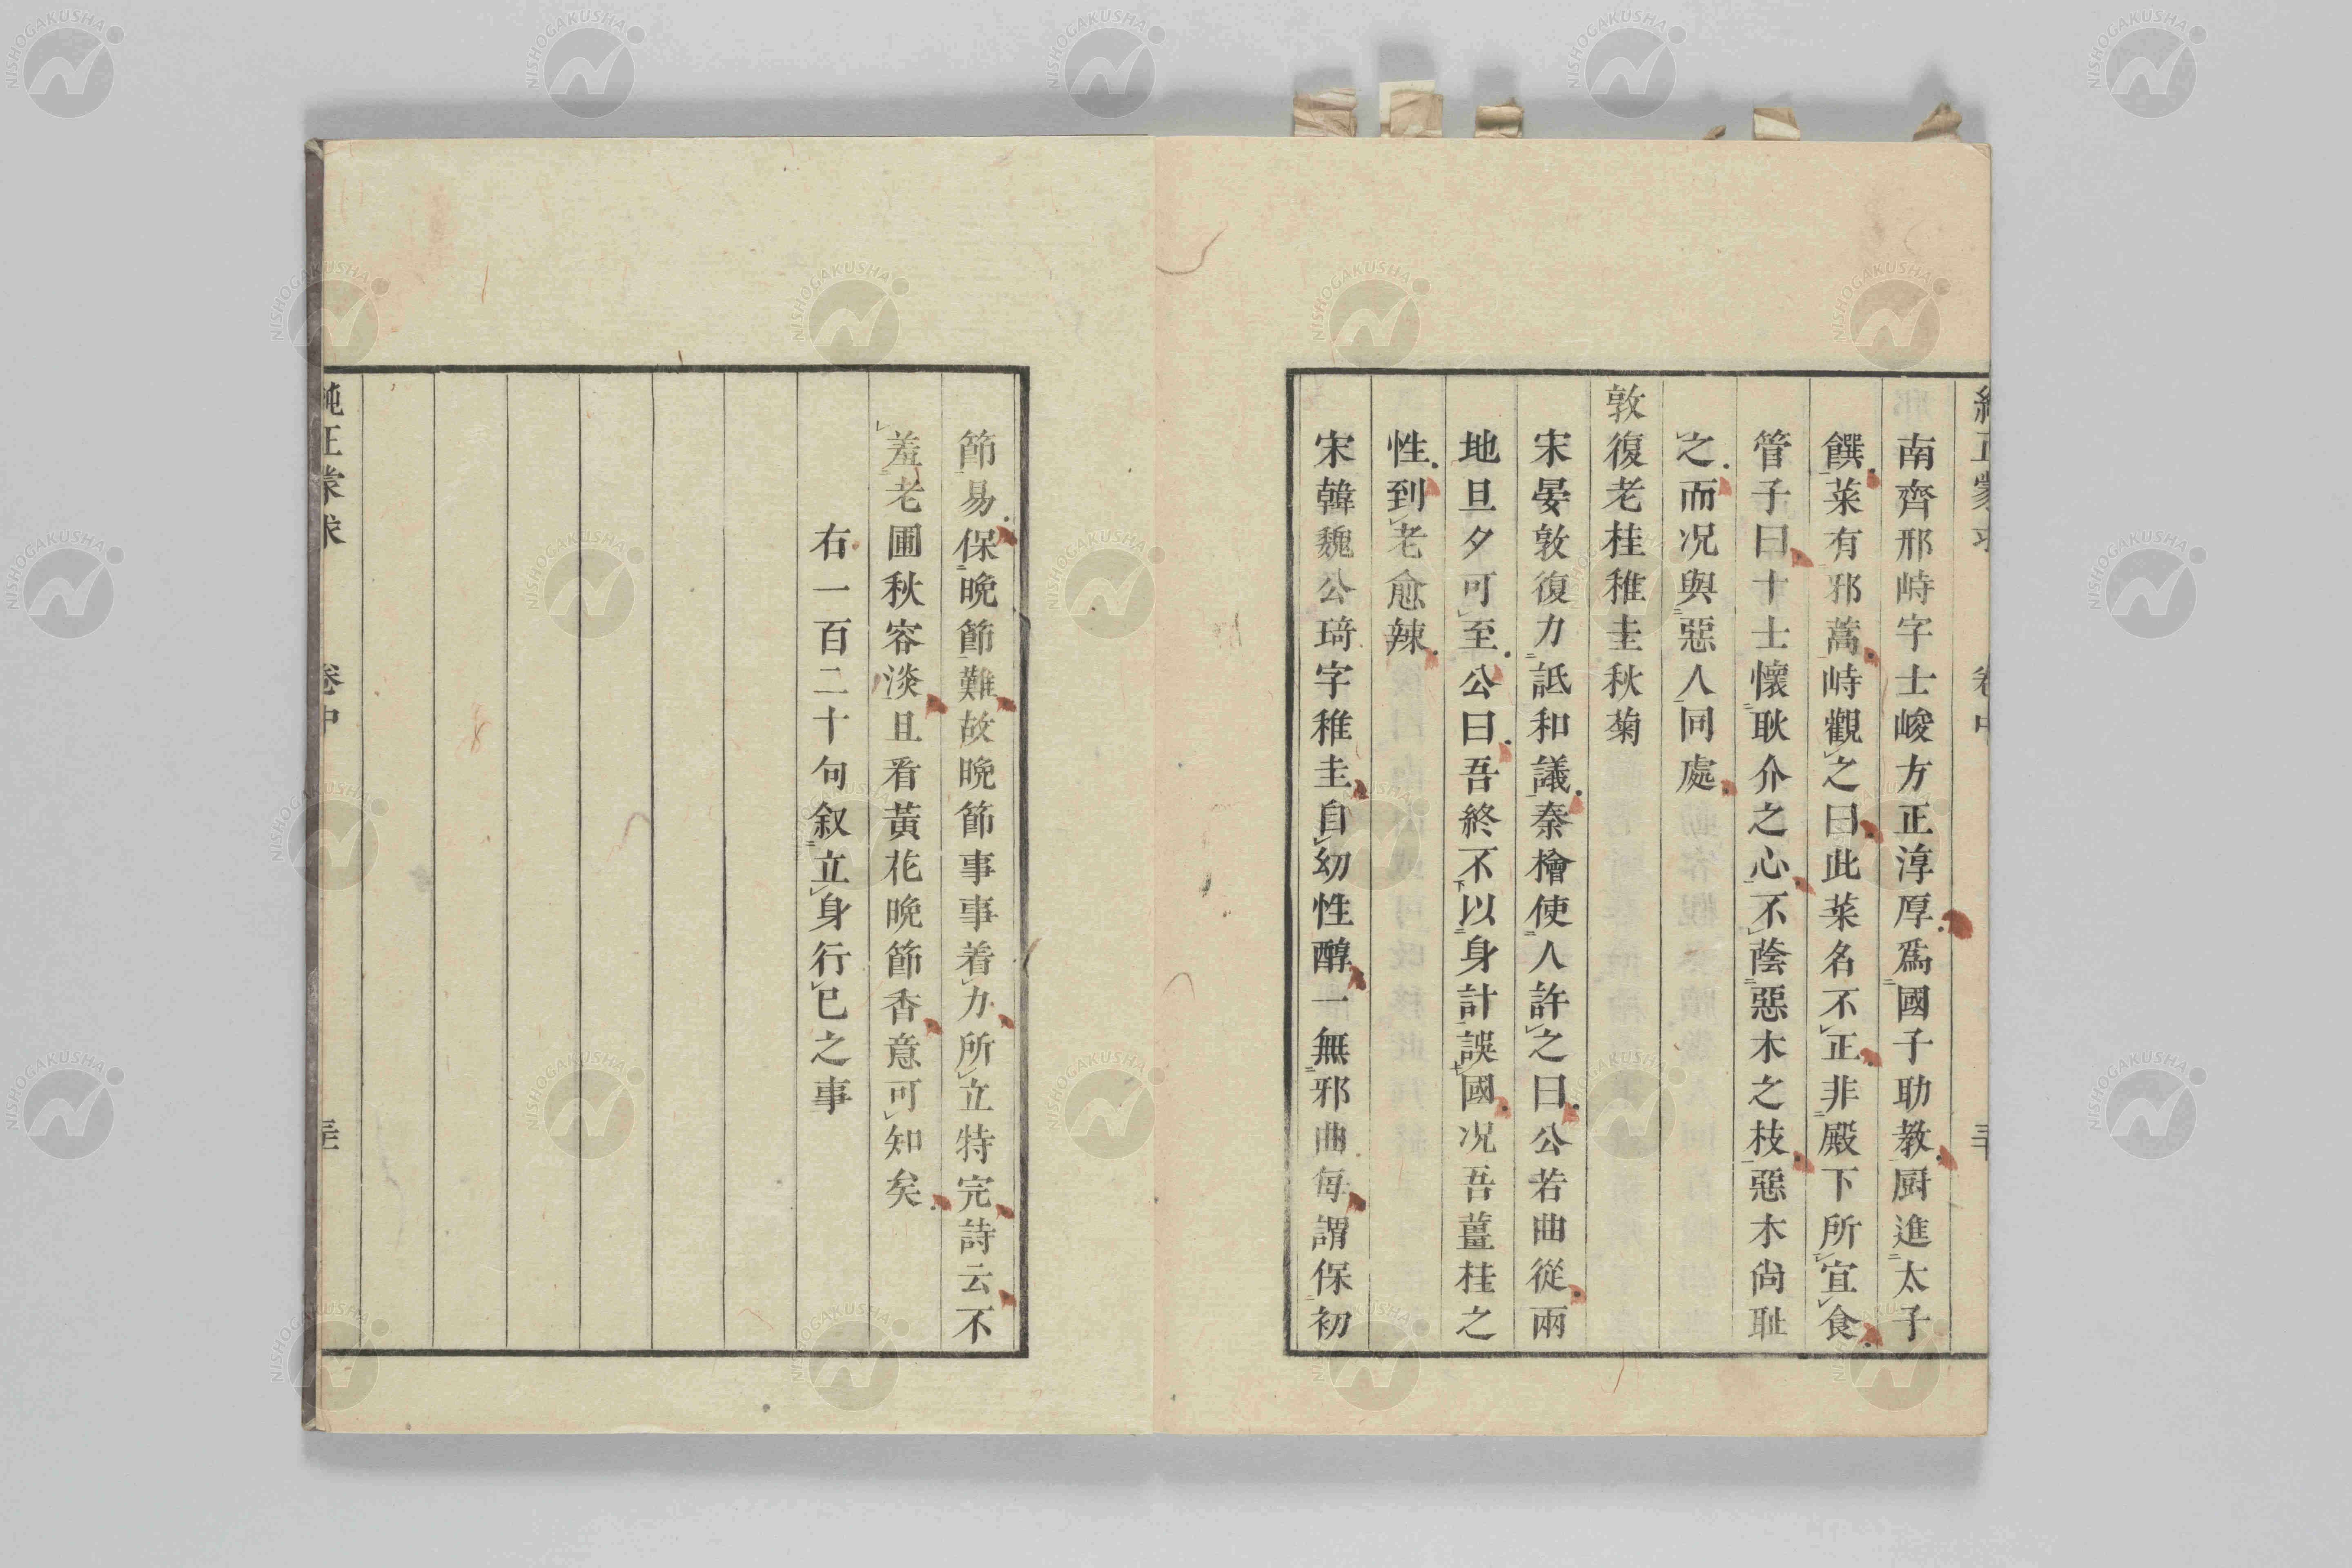 純正蒙求 卷中 三十
南齊邢峙字士峻方正淳厚爲國子助教厨進太子
饌菜有邪蒿峙觀之曰此菜名不正非殿下所宜食
管子曰十士懷耿介之心不蔭惡木之枝惡木尚耻
之而况與惡人同處
敦復老桂稚圭秋菊
宋晏敦復力詆和議秦檜使人許之曰公若曲從兩
地旦夕可至公曰吾終不以身計誤國况吾薑桂之
性到老愈辣
宋韓魏公琦字稚圭自幼性醇一無邪曲每謂保初
節易保晩節難故晩節事事着力所立特完詩云不
羞老圃秋容淡且看黃花晩節香意可知矣
右一百二十句叙立身行已之事
純正蒙求 卷中
NISHOGAKUSHA